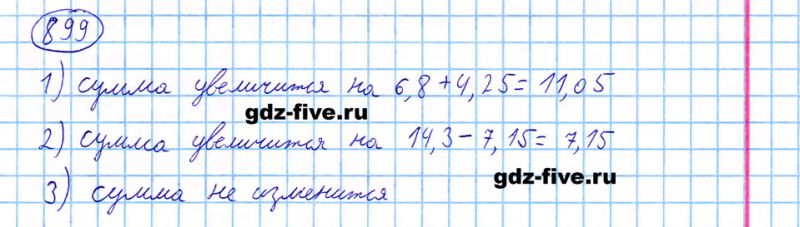 899
1) сумма увеличится на 6,8+4,25=11,05
gdz-five.ru
2) сумма увеличится на 14,3-7,15=7,15
gdz-five.ru
3) сумма не изменится